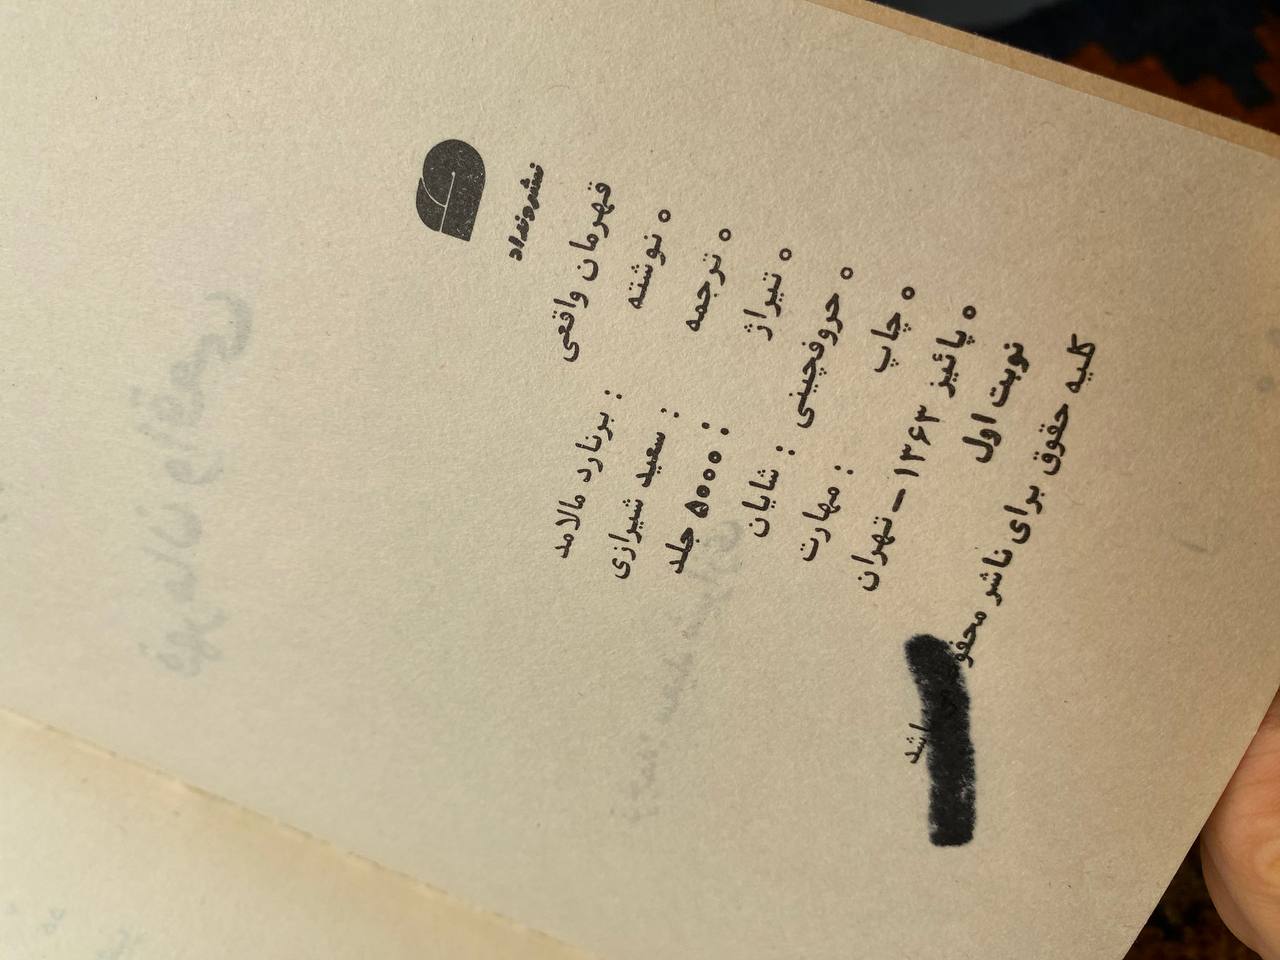 نشر ونداد
قهرمان واقعی
نوشته : برنارد مالامد
ترجمه : سعید شیرازی
تیراژ : ۵۰۰۰ جلد
حروفچینی : شایان
چاپ : مهارت
پائیز ۱۳۶۳ - تهران
نوبت اول
کلیه حقوق برای ناشر محفو
اشد